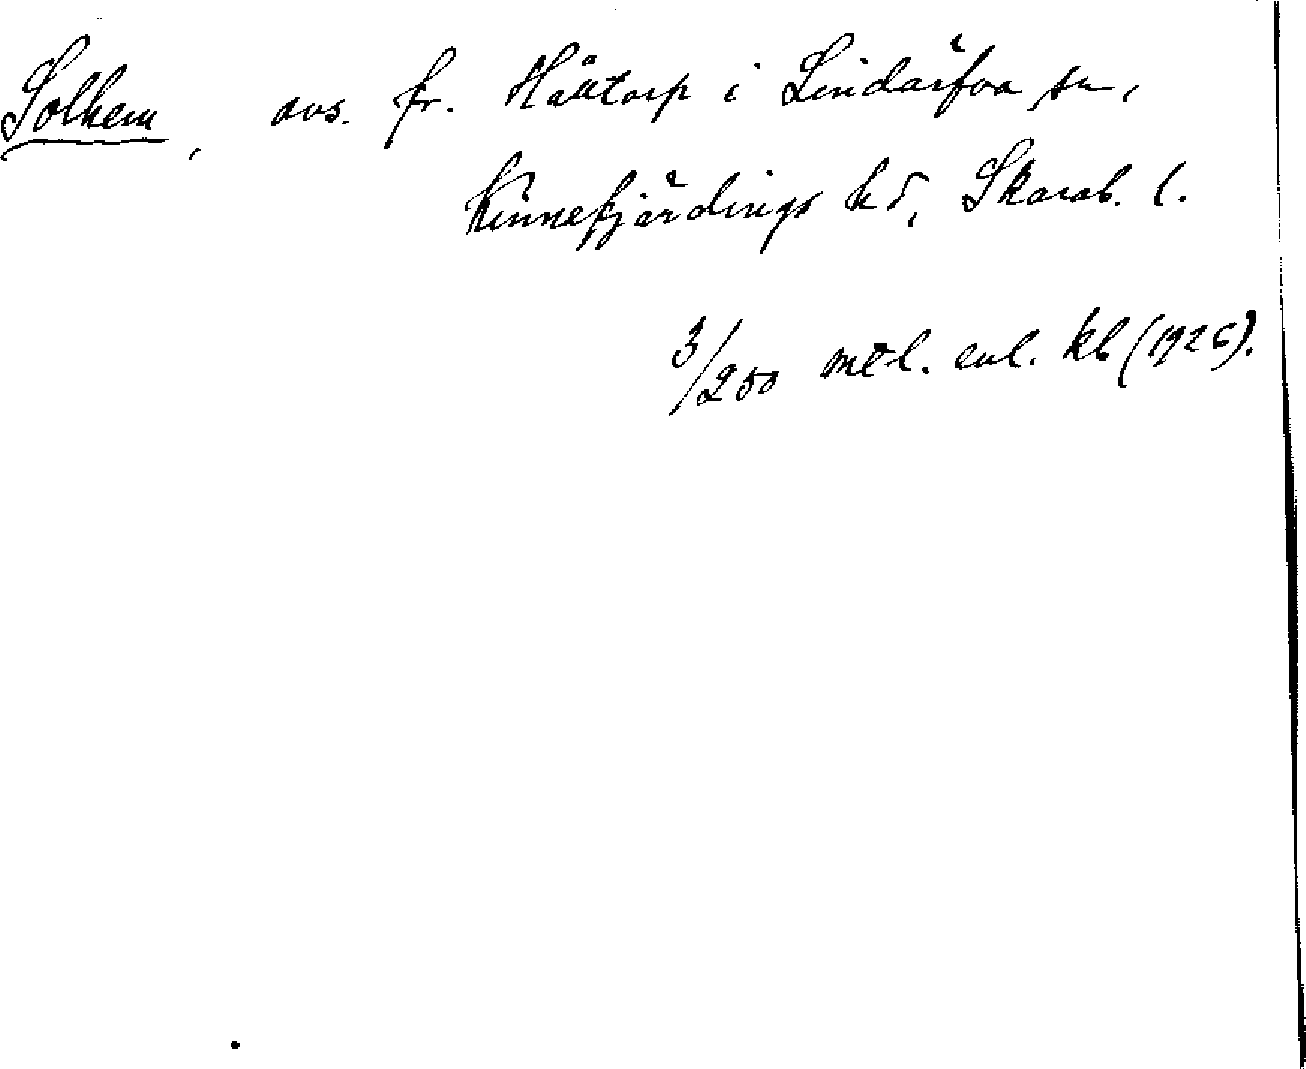 Solhem, avs. fr. Håltorp i Lindärfva sn,
Kinnefjärdings hd, Skarab. l.
3/250 mtl. enl. kb (1926).